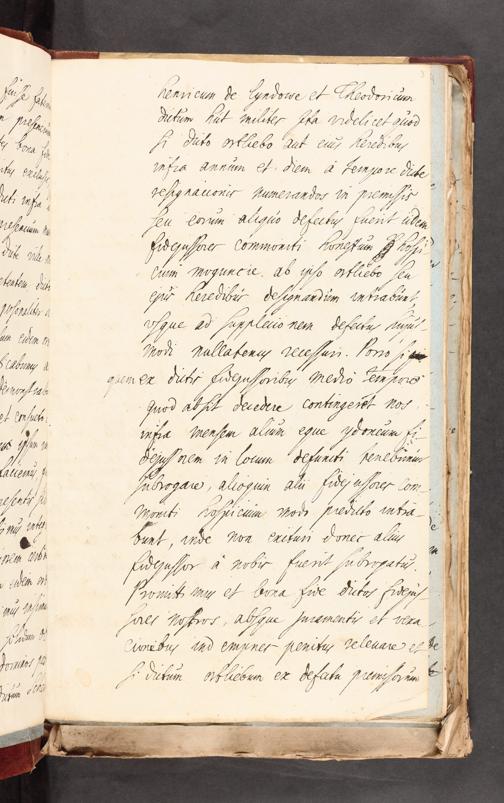 henricum de lyndowe et Theodoricum
dictum hut milites ita videlicet quod
si dicto ortliebo aut eius heredibus
infra annum et diem à tempore dicte
resignacionis numerandos in premissis
seu eorum aliquo defectus fuerit iidem
fidejussores commoniti honestum hospi-
cium moguncie ab ipso ortliebo seu
ejus heredibus designandum intrabunt
usque ad supplecionem defectus hujus-
modi nullatenus recessuri. Porro si
quem ex dictis fidejussoribus medio tempore
quod absit decedere contingeret nos
infra mensem alium eque ydoneum fi-
dejussorem in locum defuncti tenebimur
subrogare, alioquin alii fidejussores com-
moniti hospicium modo predicto intra-
bunt, inde non exituri donec alius
fidejussor à nobis fuerit subrogatus.
Promittimus et bona fide dictos fidejus-
sores nostros, absque juramentis et
cionibus indempnes penitus relevare et
si dictum ortliebum ex defectu premissorum